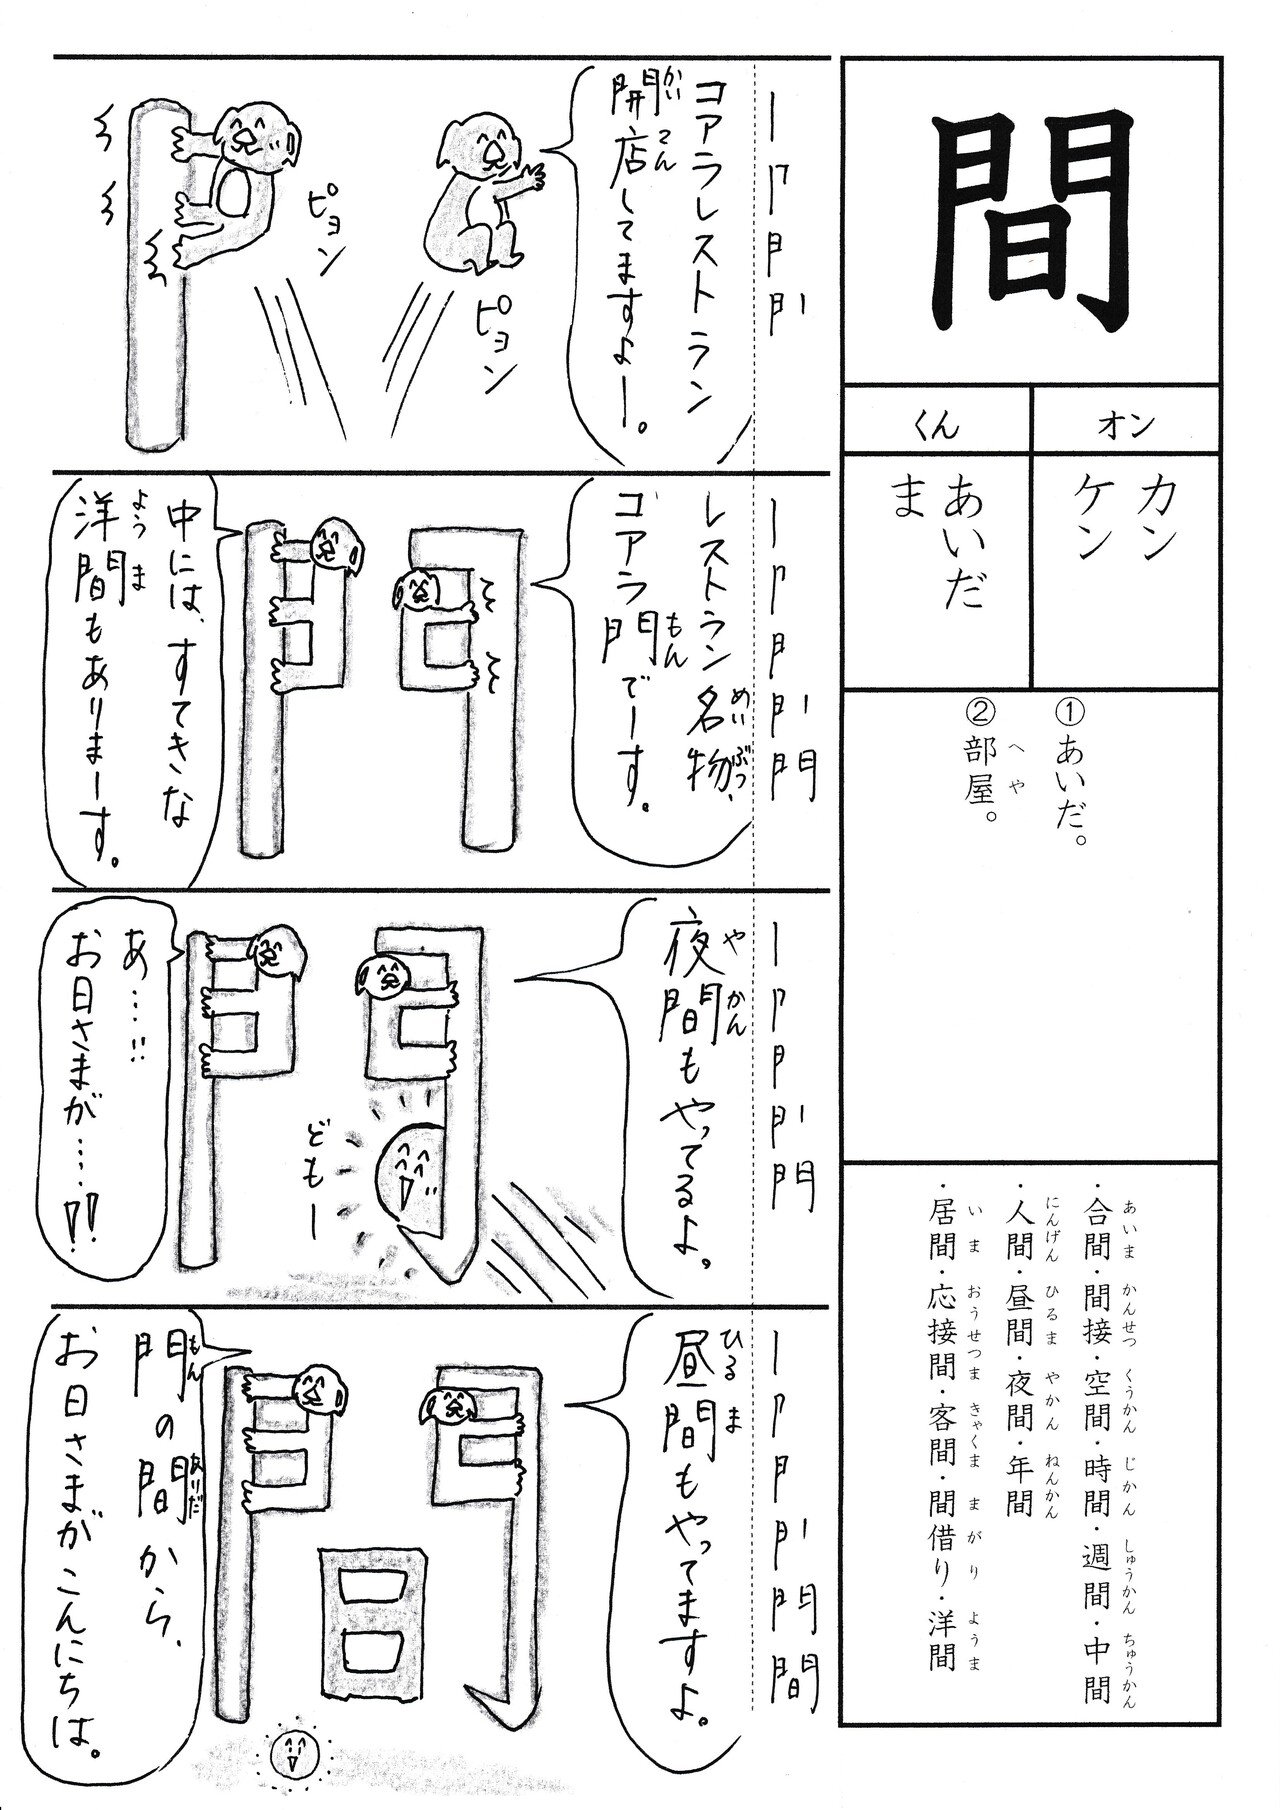 間
オン
カン
ケン
くん
あいだ
ま
①あいだ。
②部屋。
へや
・合間・間接・空間・時間・週間・中間
あいま かんせつ くうかん じかん しゅうかん ちゅうかん
・人間・昼間・夜間・年間
にんげん ひるま やかん ねんかん
・居間・応接間・客間・間借り・洋間
いま おうせつま きゃくま まがり ようま
コアラレストラン
開店してますよー。
かいてん
ピョン
ピョン
レストラン名物、
めいぶつ
コアラ門でーす。
もん
中には、すてきな
洋間もありまーす。
ようま
夜間もやってるよ。
やかん
どもー
あ…!!
お日さまが…!!
昼間もやってますよ。
ひるま
門の間から、
もん あいだ
お日さまがこんにちは。